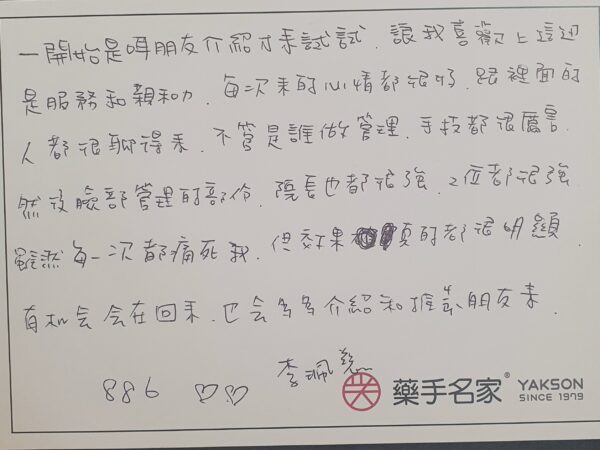 一開始是因朋友介紹才來試試．讓我喜歡上這边
是服務和親和力．每次來的心情都很好．跟裡面的
人都很聊得來．不管是誰做管理．手技都很厲害．
然後臉部管理的部份．院長也都很強．2位都很強
雖然每一次都痛死我．但效果真的都很明顯．
有机会会在回來．也会多多介紹和推荐朋友來．
886 ♡♡ 李珮慈
藥手名家® YAKSON
SINCE 1979